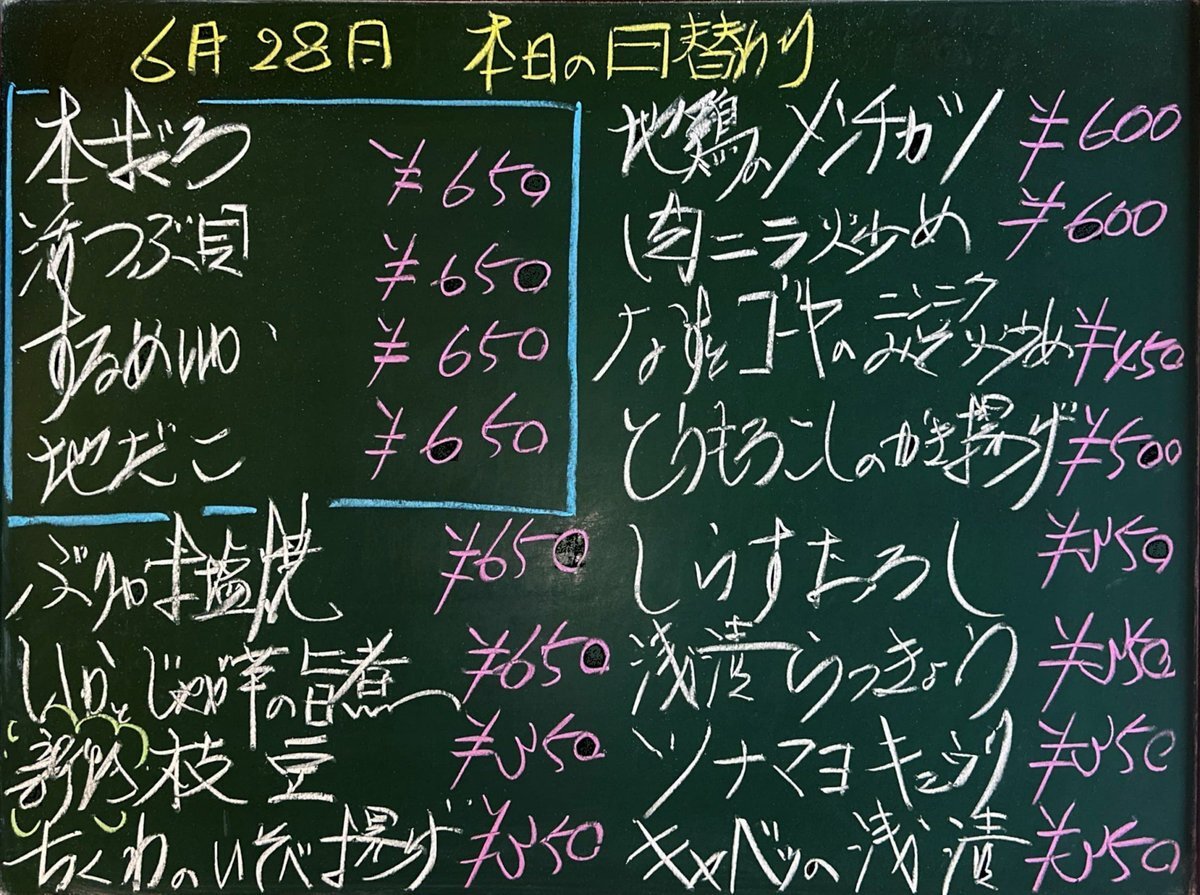 6月28日 本日の日替わり
本まぐろ ¥650
活つぶ貝 ¥650
するめいか ¥650
地だこ ¥650
ぶりカマ塩焼 ¥650
いかとじゃが芋の旨煮 ¥650
枝豆 ¥350
ちくわのいそべ揚げ ¥350
地鶏のメンチカツ ¥600
肉ニラ炒め ¥600
なすとゴーヤのニンニクみそ炒め ¥450
とうもろこしのかき揚げ ¥500
しらすおろし ¥350
浅漬らっきょう ¥350
ツナマヨキュウリ ¥350
キャベツの浅漬 ¥350